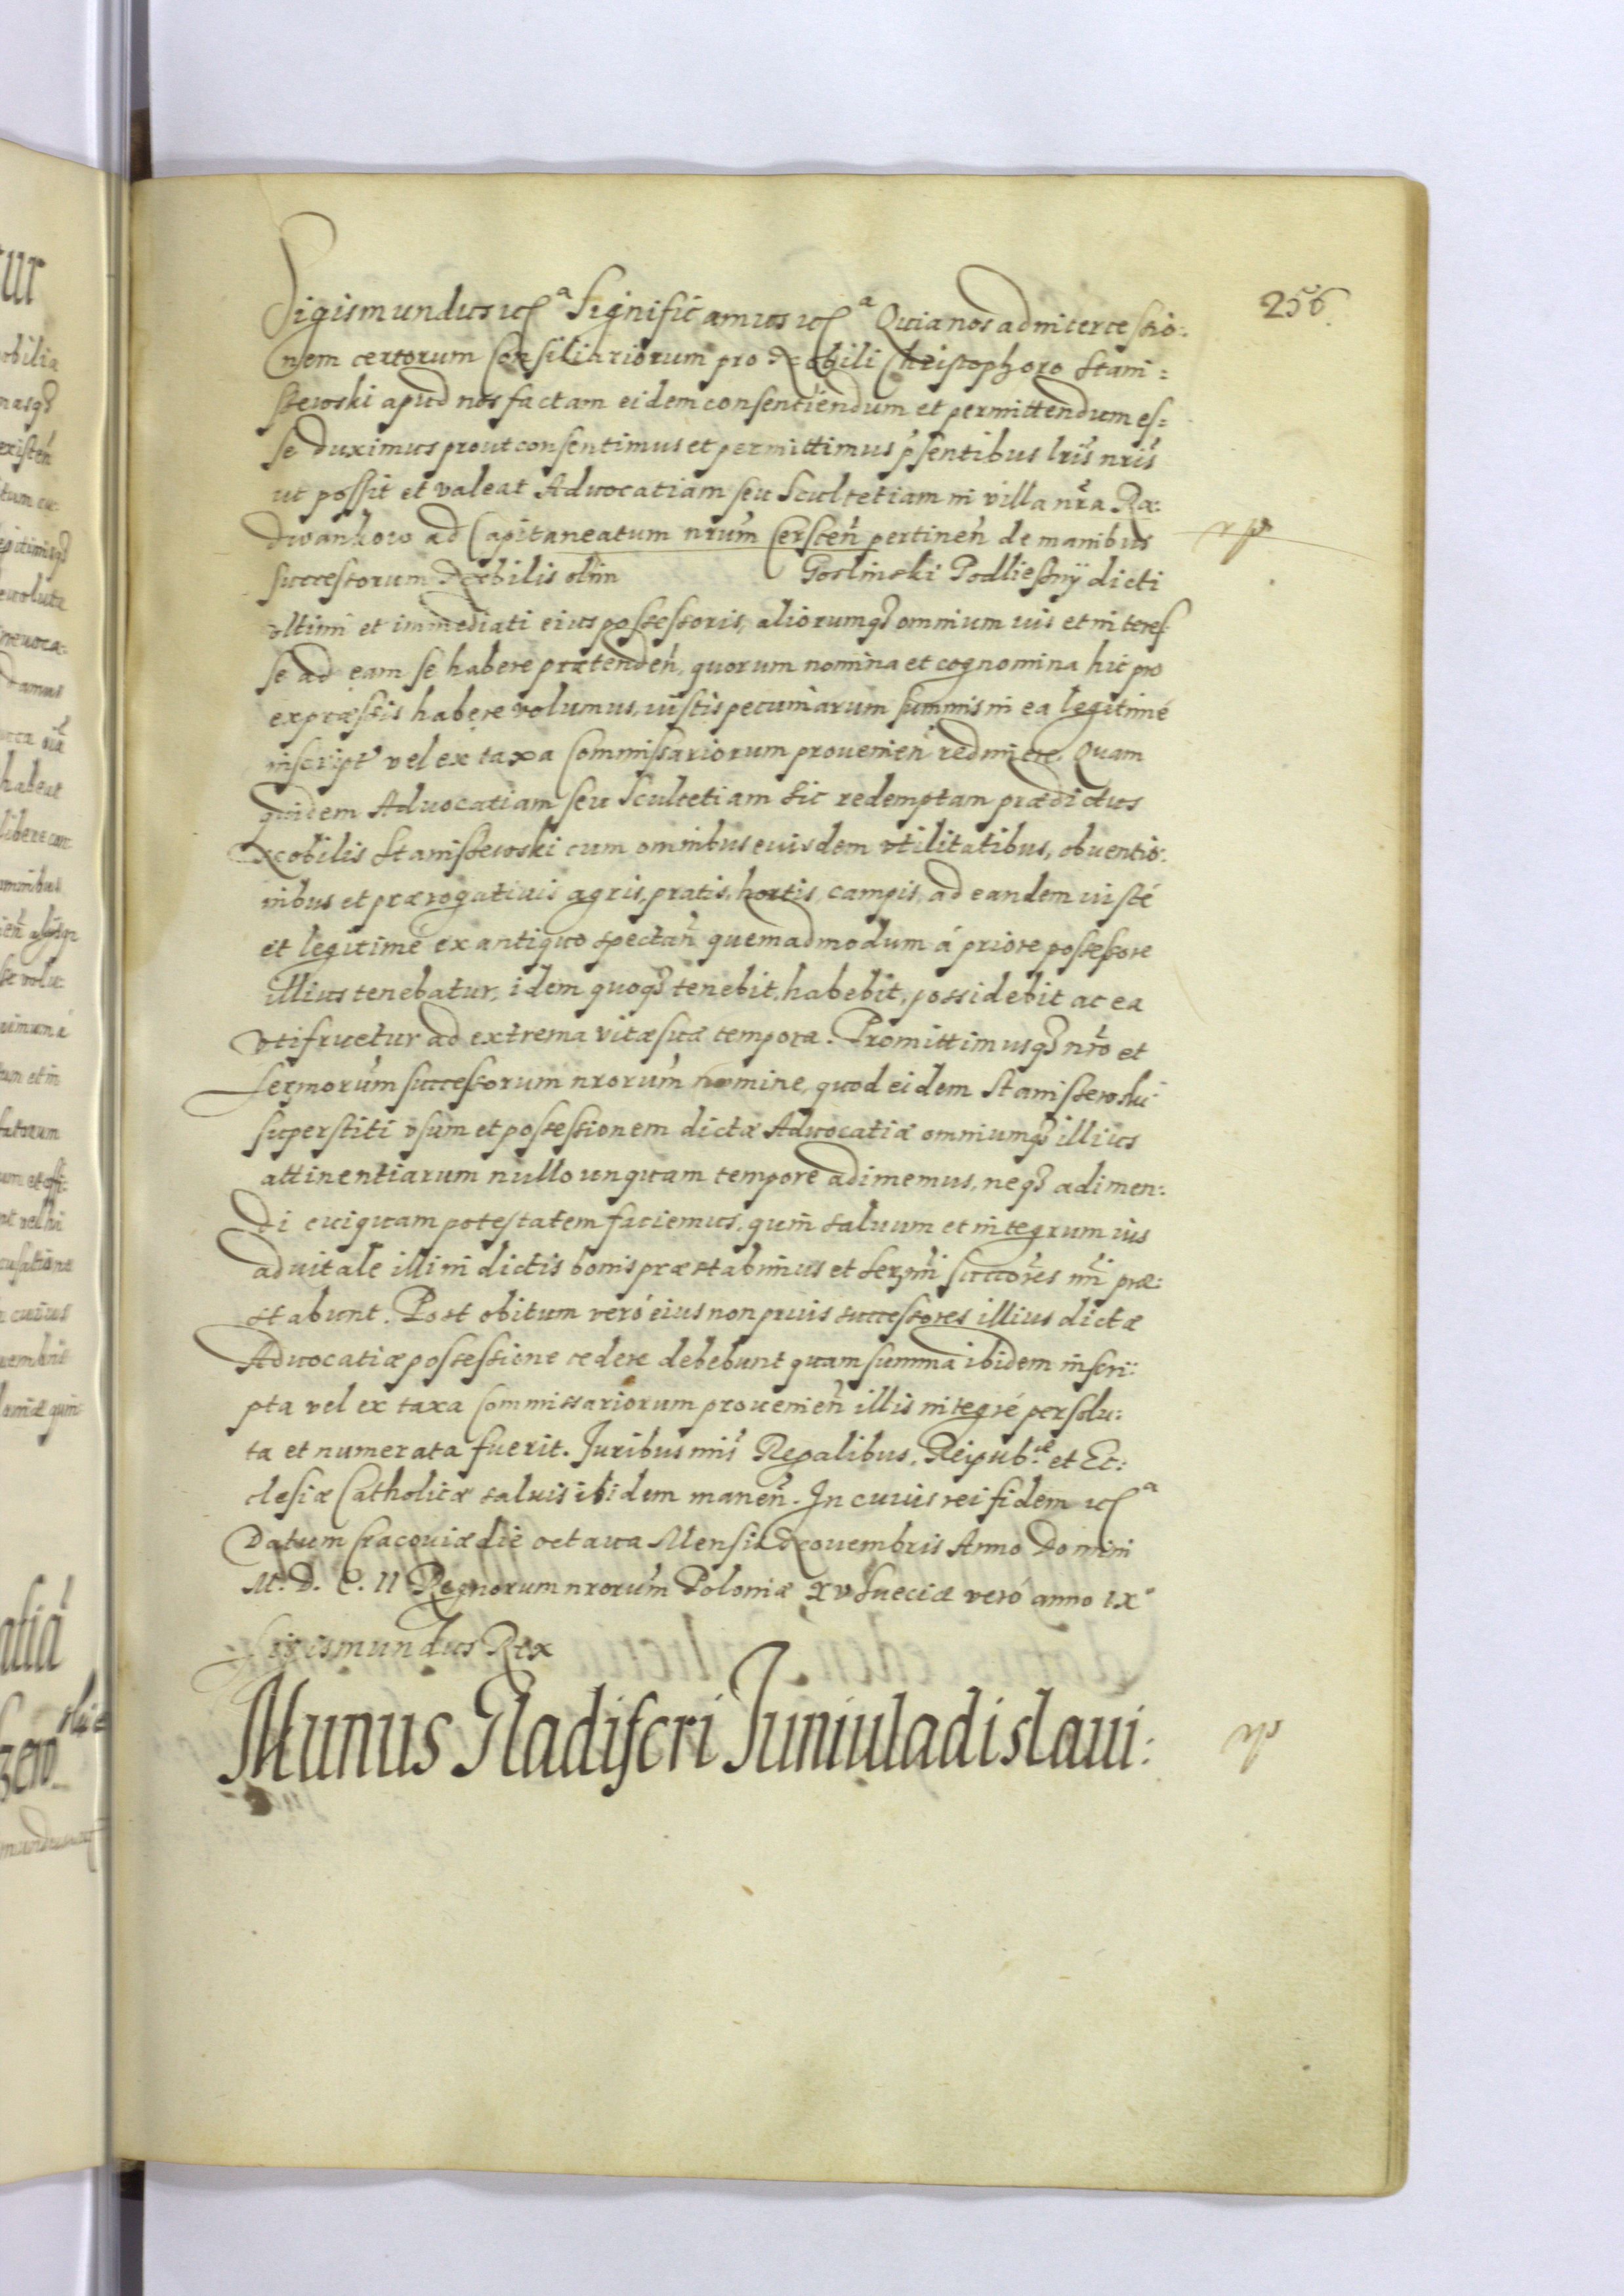 256
Sigismundus etc.ª Significamus etc.ª Quia nos ad intercessio:
nem certorum Consiliariorum pro Nobili Christophoro Stani=
szewski apud nos factam eidem consentiendum et permittendum es=
se duximus prout consentimus et permittimus p̃sentibus lrĩs nrĩs
ut possit et valeat Advocatiam seu Scultetiam in villa nrã Ra:
dwankow ad Capitaneatum nrũm Cersteñ pertineñ de manibus
successorum Nobilis olim Goslinski Podliesny dicti
vltimi et immediati eius possessoris, aliorumq3 omnium ius et interes
se ad eam se habere prætendeñ, quorum nomina et cognomina hic pro
expræssis habere volumus, iustis pecuniarum summis in ea legitimé
inscript' vel ex taxa Commissariorum prouenieñ redimere. Quam
quidem Aduocatiam seu Scultetiam sic redemptam prædictus
Nobilis Staniszewski cum omnibus euisdem vtilitatibus, obuentio:
nibus et prærogatiuis agris, pratis, hortis, campis, ad eandem iusté
et legitimé ex antiquo spectañ quemadmodum á priore possessore
illius tenebatur, idem quoq3 tenebit, habebit, possidebit ac ea
vtifruetur ad extrema vitæ suæ tempora. Promittimusq3 nrõ et
Sermorũm successorum nrorũm nomine, quod eidem Staniszewski
superstiti vsum et possessionem dictæ Aduocatiæ omniumq3 illius
attinentiarum nullo unquam tempore adimemus, neq3 adimen:
di cuiquam potestatem faciemus, quiñ saluum et integrum ius
aduitale illi in dictis bonis præstabimus et Sermĩ succõres nrĩ præ:
stabunt. Post obitum veró eius non prius successores illius dictæ
Aduocatiæ possessione cedere debebunt quam summa ibidem inscri:
pta vel ex taxa Commissariorum prouenieñ illis integré persolu:
ta et numerata fuerit. Juribus nrĩs Regalibus, Reipub.cæ et Ec:
clesiæ Catholicæ saluis ibidem maneñ. In cuius rei fidem etc.ª
Datum Cracouiæ die octaua Mensis Nouembris Anno Domini
M. D. C. II Regnorum nrorũm Poloniæ XV Sueciæ veró anno IX°
Sigismundus Rex
Munus Gladiferi Juniuladislaui: